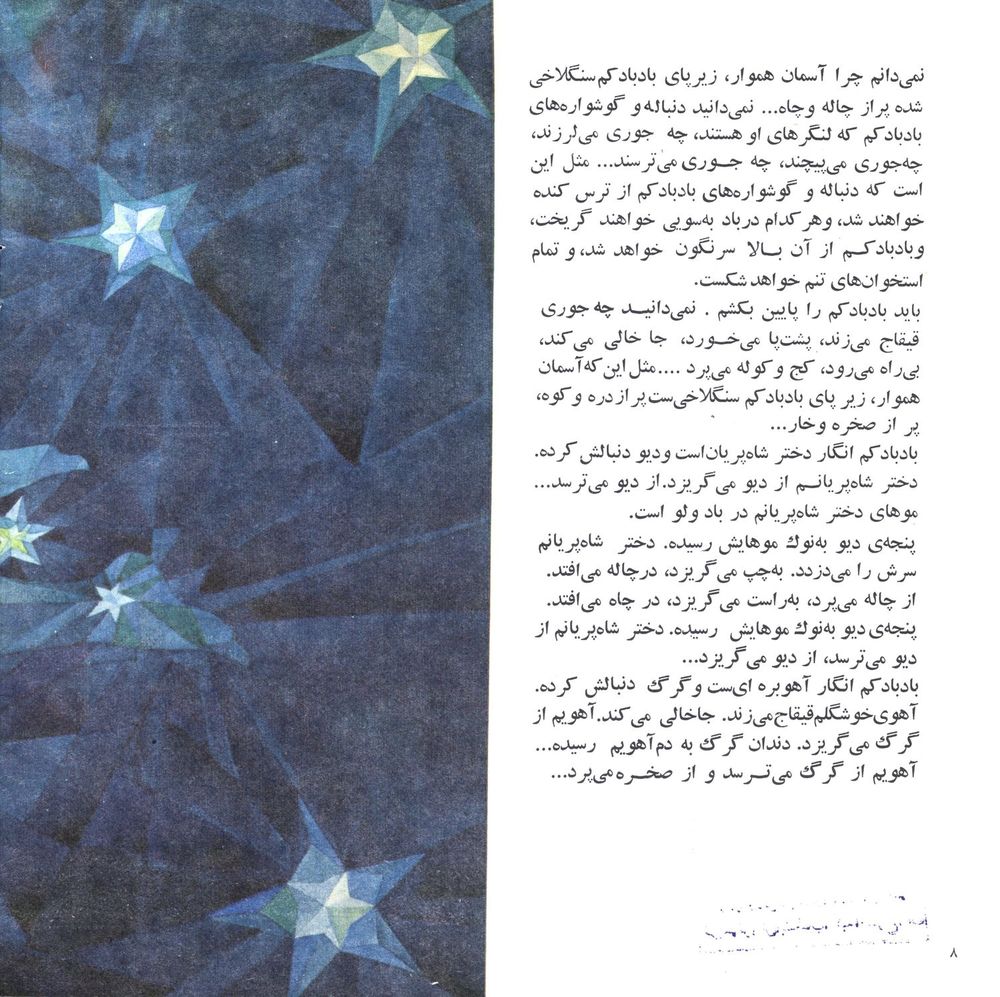 نمی‌دانم چرا آسمان هموار، زیر پای بادبادکم سنگلاخی
شده پراز چاله وچاه... نمی‌دانید دنباله و گوشواره‌های
بادبادکم که لنگرهای او هستند، چه جوری می‌لرزند،
چه‌جوری می‌پیچند، چه جوری می‌ترسند... مثل این
است که دنباله و گوشواره‌های بادبادکم از ترس کنده
خواهند شد، وهر کدام درباد به‌سویی خواهند گریخت،
وبادبادکم از آن بالا سرنگون خواهد شد، و تمام
استخوان‌های تنم خواهد شکست.
باید بادبادکم را پایین بکشم . نمی‌دانید چه جوری
قیقاج می‌زند، پشت‌پا می‌خورد، جا خالی می‌کند،
بی‌راه می‌رود، کج و کوله می‌پرد ....مثل این‌که آسمان
هموار، زیر پای بادبادکم سنگلاخی‌ست پر از دره و کوه،
پر از صخره وخار...
بادبادکم انگار دختر شاه‌پریان‌است ودیو دنبالش کرده.
دختر شاه‌پریانم از دیو می‌گریزد.از دیو می‌ترسد...
موهای دختر شاه‌پریانم در باد ولو است.
پنجه‌ی دیو به‌نوك موهایش رسیده. دختر شاه‌پریانم
سرش را می‌دزدد. به‌چپ می‌گریزد، درچاله می‌افتد.
از چاله می‌پرد، به‌راست می‌گریزد، در چاه می‌افتد.
پنجه‌ی دیو به‌نوك موهایش رسیده. دختر شاه‌پریانم از
دیو می‌ترسد، از دیو می‌گریزد...
بادبادکم انگار آهوبره ای‌ست و گرگ دنبالش کرده.
آهوی‌خوشگلم‌قیقاج‌می‌زند. جاخالی می‌کند.آهویم از
گرگ می‌گریزد. دندان گرگ به دم‌آهویم رسیده...
آهویم از گرگ می‌ترسد و از صخره می‌پرد...
۸